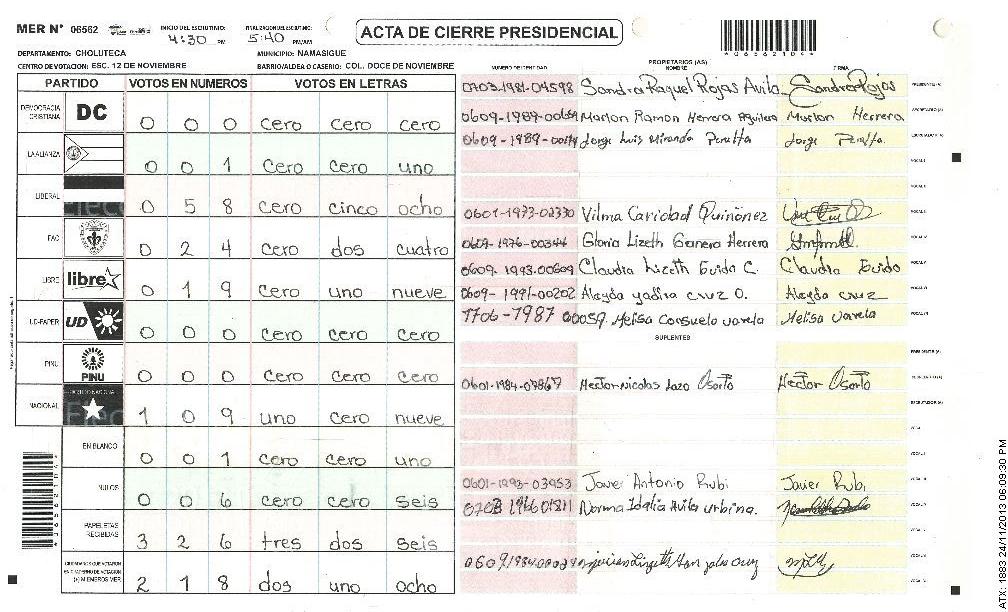 MER Nº 06562
INICIO DEL ESCRUTINIO:
4:30 PM
FINALIZACION DEL ESCRUTINIO:
5:40 PM/AM
ACTA DE CIERRE PRESIDENCIAL
DEPARTAMENTO: CHOLUTECA
MUNICIPIO: NAMASIGUE
CENTRO DE VOTACION: ESC. 12 DE NOVIEMBRE
BARRIO/ALDEA O CASERIO: COL. DOCE DE NOVIEMBRE
PARTIDO VOTOS EN NUMEROS VOTOS EN LETRAS
DEMOCRACIA CRISTIANA DC 0 0 0 cero cero cero
LA ALIANZA 0 0 1 cero cero uno
LIBERAL 0 5 8 cero cinco ocho
FAC 0 2 4 cero dos cuatro
LIBRE libre 0 1 9 cero uno nueve
UD-FAPER UD 0 0 0 cero cero cero
PINU PINU 0 0 0 cero cero cero
NACIONAL 1 0 9 uno cero nueve
EN BLANCO 0 0 1 cero cero uno
NULOS 0 0 6 cero cero seis
PAPELETAS RECIBIDAS 3 2 6 tres dos seis
CIUDADANOS QUE VOTARON
EN CUADERNO DE VOTACION
(+) MIEMBROS MER 2 1 8 dos uno ocho
PROPIETARIOS (AS)
NUMERO DE IDENTIDAD NOMBRE FIRMA
0703-1981-04598 Sandra Raquel Rojas Avila Sandra Rojas
Marlon Ramon Herrera Aguilera Marlon Herrera
Jorge Luis Miranda Peralta Jorge Peralta
0601-1973-02330 Vilma Caridad Quiñónez
0609-1976-00344 Gloria Lizeth Herrera
0609-1993-00609 Claudia Lizeth Guido C. Claudia Guido
0609-1991-00202 Alayda yadira cruz O. Alayda cruz
1706-1987 00059 Melisa Consuelo varela Melisa varela
SUPLENTES
Hector nicolas Lazo Osorto Hector Osorto
0601-1993-03953 Javier Antonio Rubi Javier Rubi
Norma Idalia Avila urbina.
ATX: 1683 24/11/2013 06:09:30 PM